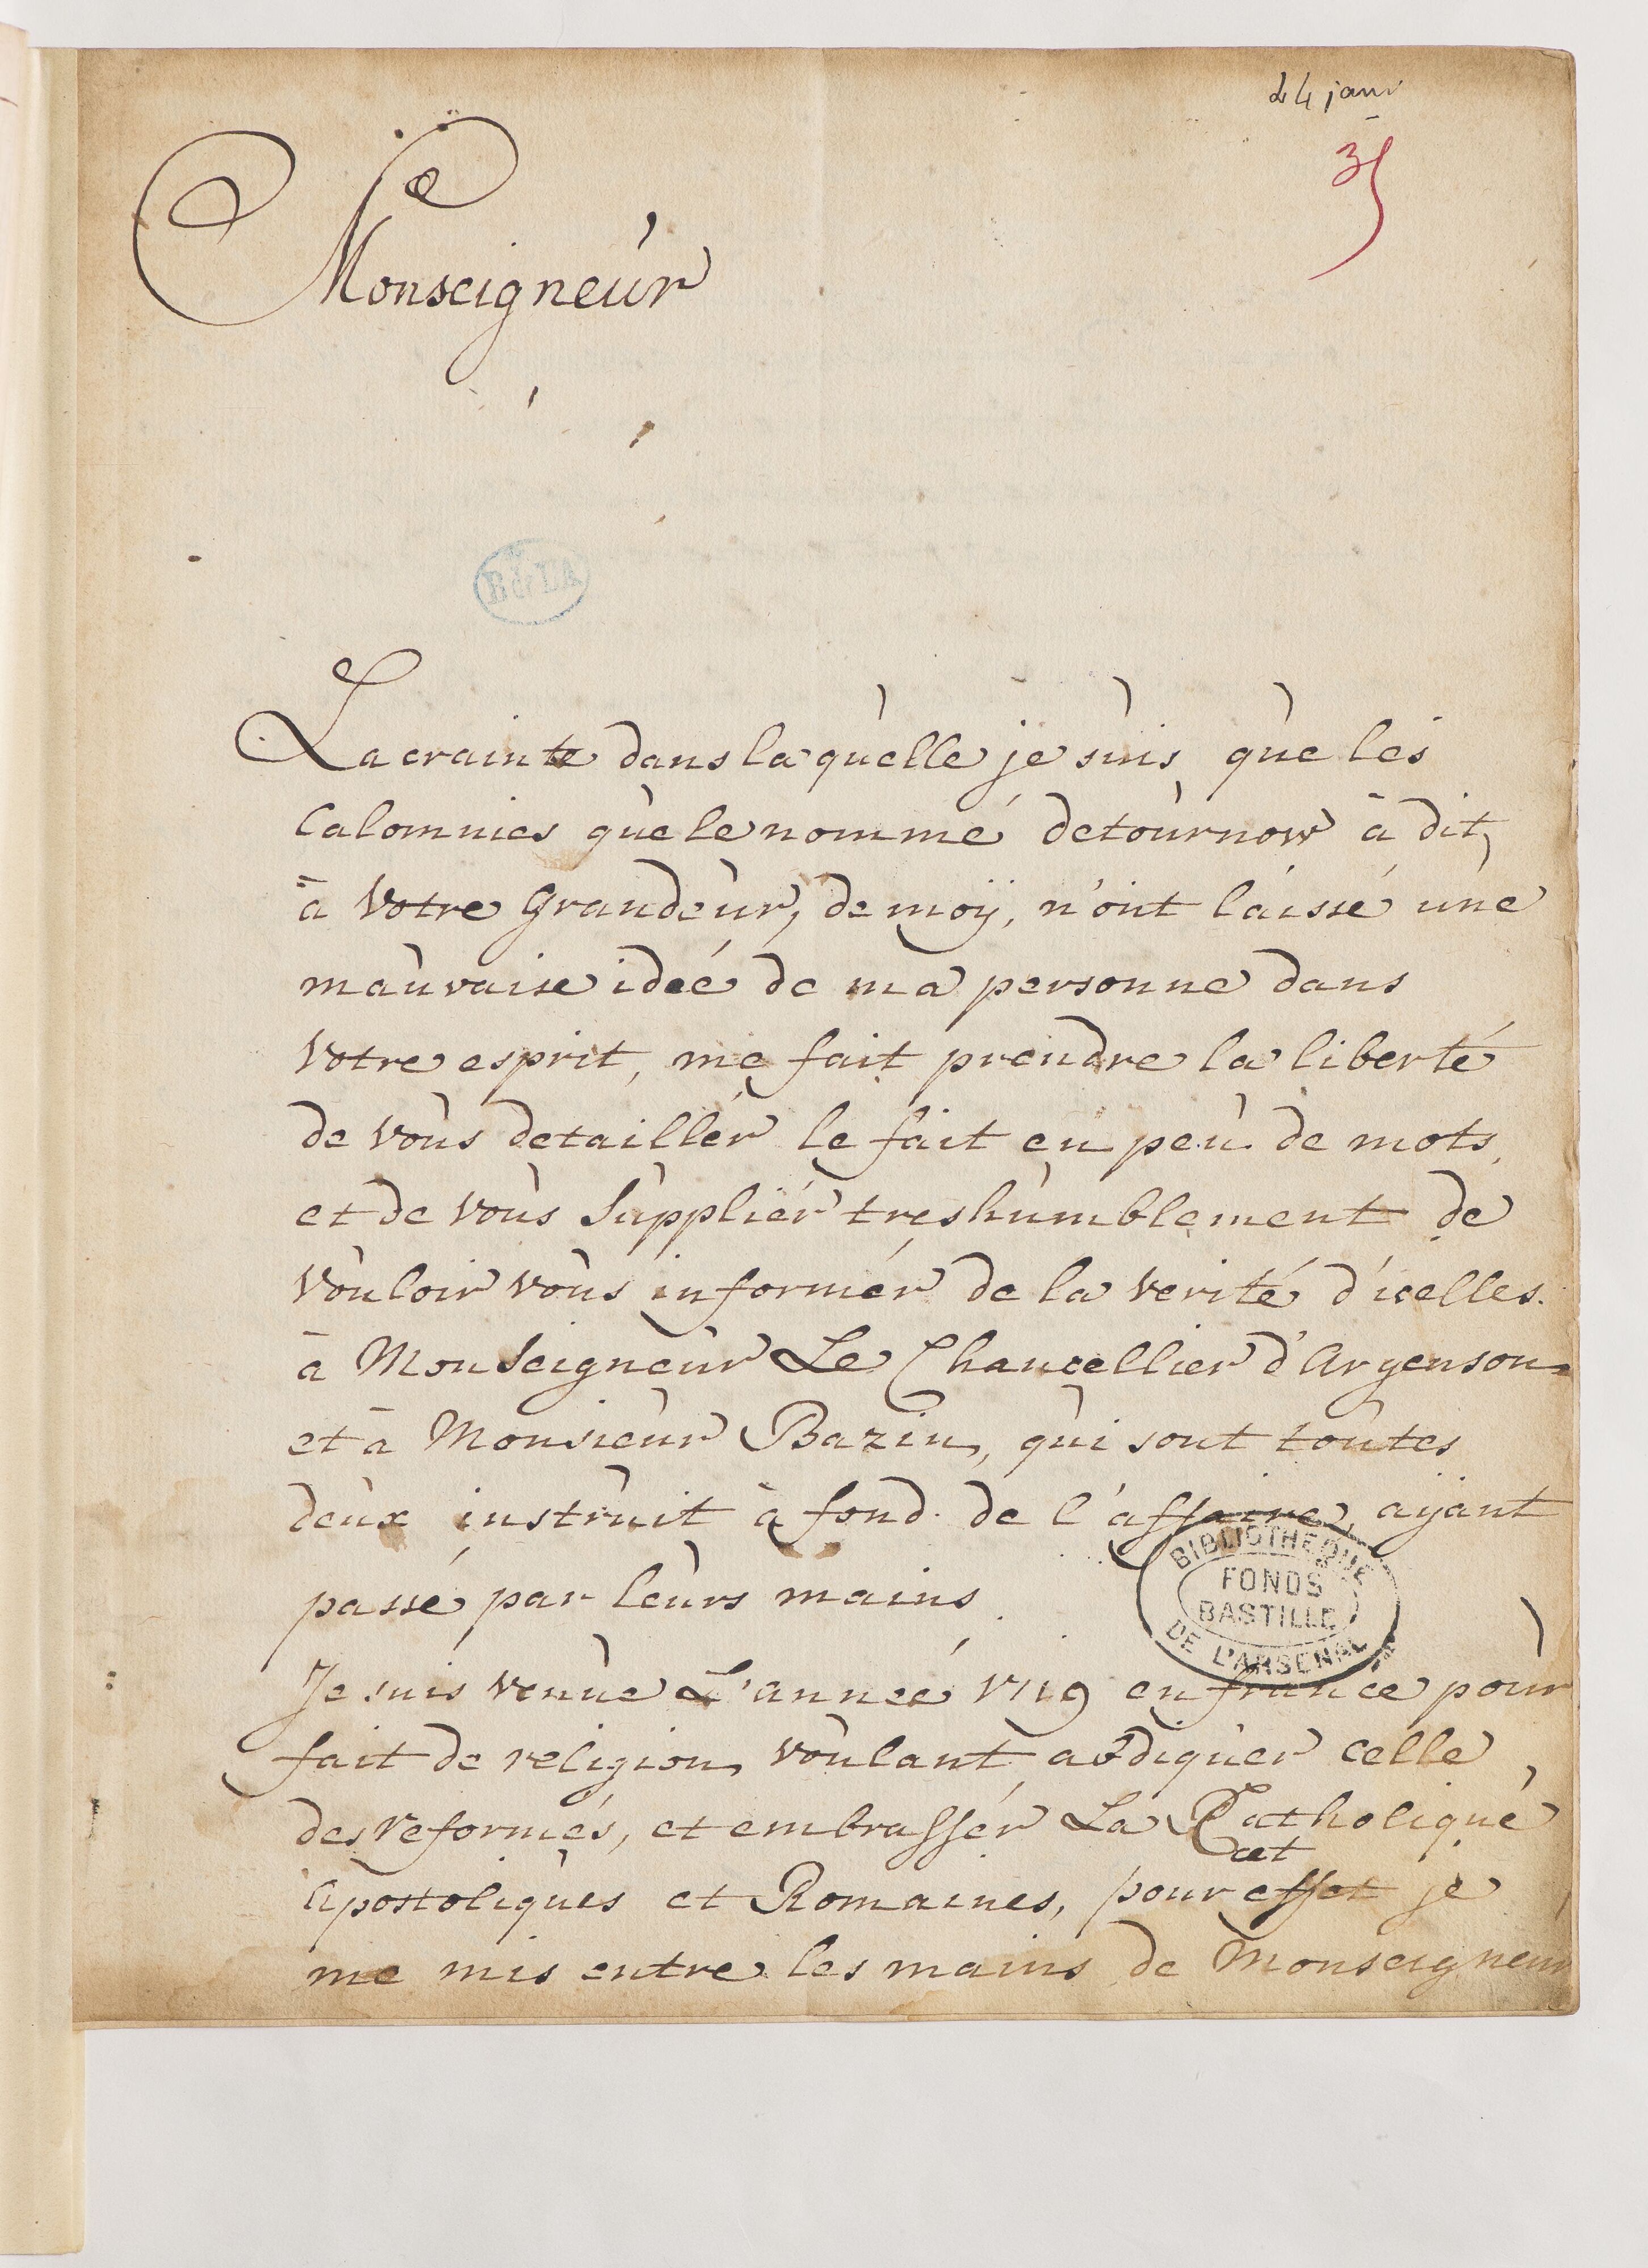 24 janv
35
Monseigneur
B de L'A
La crainte dans laquelle je suis que les
Calomnies que le nommé detournow à dit,
à Votre Grandeur, de moÿ, n'ont laissé une
mauvaise ideé de ma personne dans
Votre esprit, me fait prendre la liberté
de vous detaillér le fait en peu de mots,
et de vous Suppliér treshumblement de
vouloir vous informér de la verité d'icelles.
à Monseigneur Le Chancellier d'Argenson
et à Monsieur Bazin, qui sont toutes
deux instruit à fond de l'affaire, aÿant
passé par leurs mains.
BIBLIOTHEQUE
FONDS
BASTILLE
DE L'ARSENAL
Je suis venue L'anneé 1719 en france pour
fait de religion, voulant abdiquer celle
des reformés, et embrassér La Catholique
cet
Apostoliques et Romaines, pour effet je
me mis entre les mains de Monseigneur